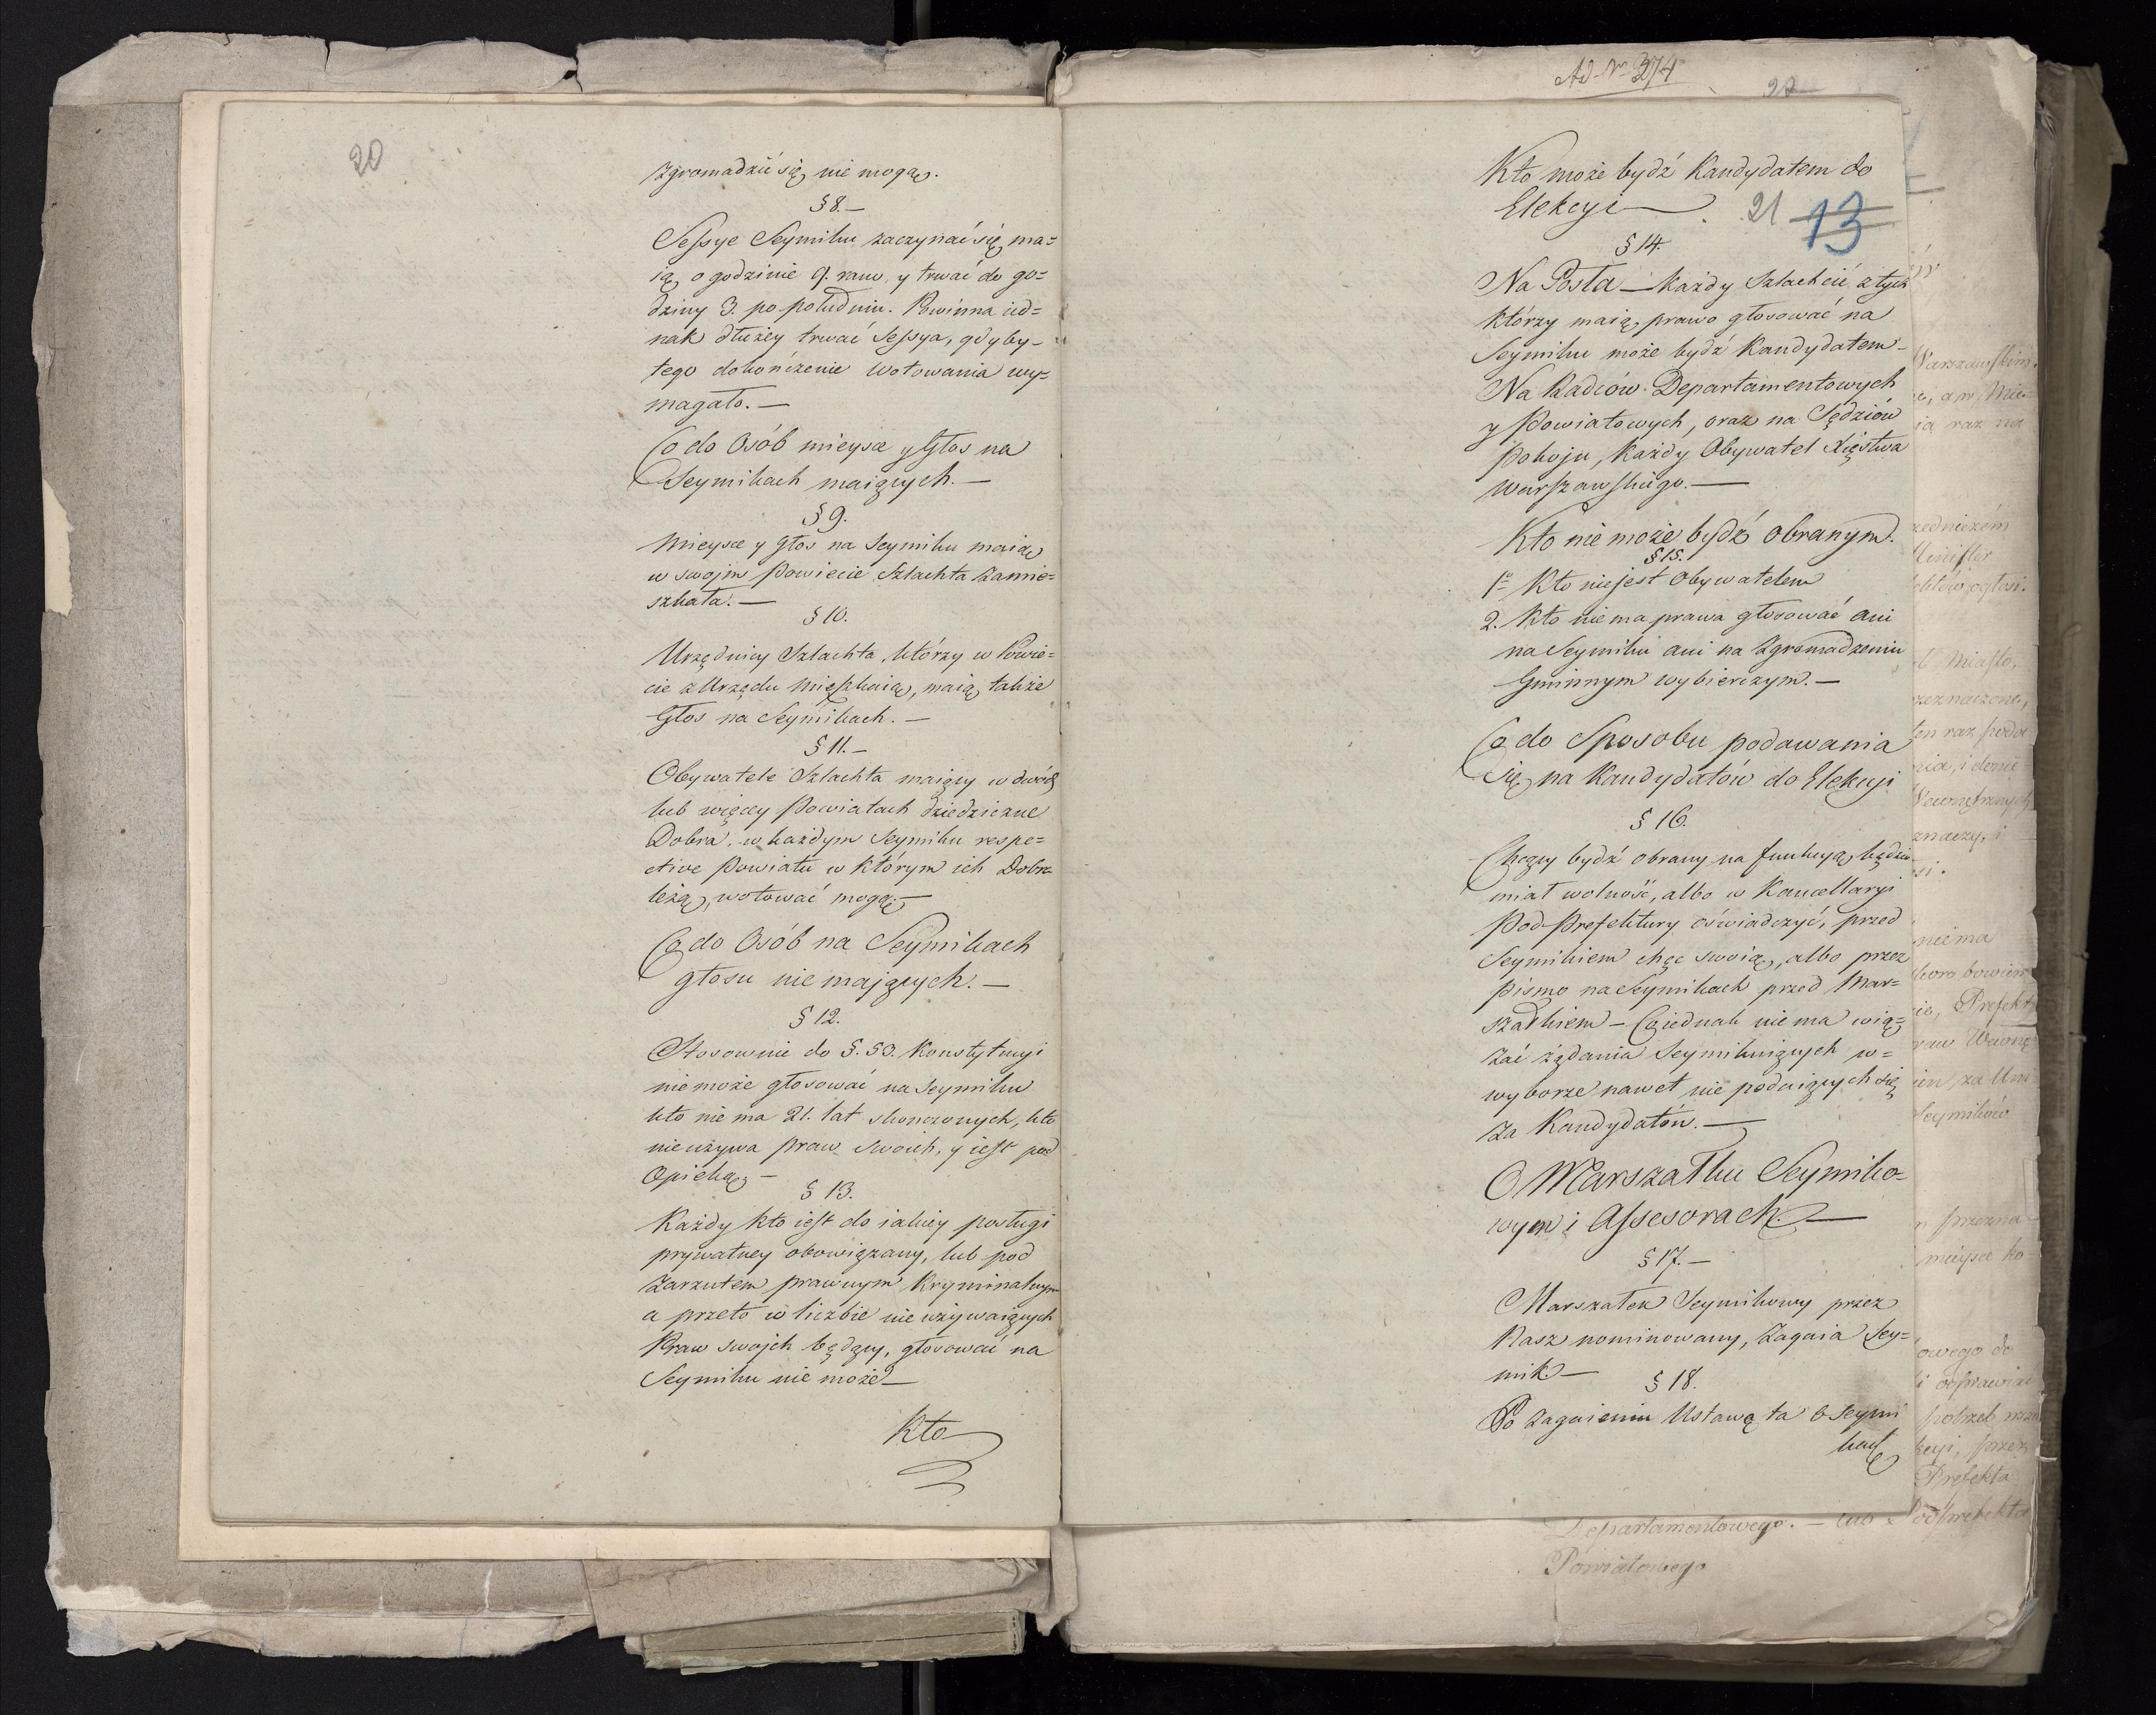 20
zgromadzić się nie mogą.
§ 8.—
Sessye Seymiku zaczynać się ma=
ią o godzinie 9. rano, y trwać do go=
dziny 3. po południu. Powinna ied=
nak dłużey trwać Sessya, gdyby-
tego dokończenie wotowania wy=
magało.—
Co do Osób mieysce y Głos na
Seymikach maiących.—
§ 9.
Mieysce y Głos na Seymiku maią
w swojm Powiecie Szlachta zamie=
szkała.—
§ 10.
Urzędnicy Szlachta, którzy w Powie=
cie z Urzędu mieszkaią, maią także
Głos na Seymikach.—
§ 11.—
Obywatele Szlachta maiący w dwóch
lub więcey Powiatach dziedziczne
Dobra, w każdym Seymiku respe=
ctive Powiatu w którym ich Dobra
leżą, wotować mogą.—
Co do Osób na Seymikach
głosu nie mających.—
§ 12.
Stosownie do §. 53. Konstytucyi
nie może głosować na Seymiku
kto nie ma 21. lat skonczonych, kto
nie używa praw swoich, y iest pod
Opieką,—
§ 13.
Każdy kto iest do iakiey posługi
prywatney obowiązany, lub pod
zarzutem prawnym Kryminalnym
a przeto w liczbie nie używaiących
Praw swojch będący, głosować na
Seymiku nie może—
Kto
Ad Nr 374
22
Kto może bydź Kandydatem do
Elekcyi—
21 13
§ 14.
Na Posła—każdy Szlachcic z tych
którzy maią prawo głosować na
Seymiku może bydź Kandydatem-
Na Radców Departamentowych
y Powiatowych, oraz na Sędziów
Pokoju, każdy Obywatel Xięstwa
Warszawskiego.—
Kto nie może bydź obranym.
§ 15.
1o Kto nie jest Obywatelem
2. Kto nie ma prawa głosować ani
na Seymiku ani na Zgromadzeniu
Gminnym wybierczym.—
Co do Sposobu podawania
się na Kandydatów do Elekcyi
§ 16.
Chcący bydź obrany na funkcyą będzie
miał wolność, albo w Kancellaryi
Pod-Prefektury oświadczyć, przed
Seymikiem chęc swoią, albo przez
pismo na Seymikach przed Mar=
szałkiem—Co iednak nie ma wią=
zać żądania Seymikuiących w=
wyborze nawet nie podaiących się
za Kandydatów.—
O Marszałku Seymiko-
wym i Assesorach.—
§ 17.—
Marszałek Seymikowy przez
Nasz nominowany, Zagaia Sey=
mik—
§ 18.
Po zagaieniu Ustawę ta o Seymi
kach
Departamentowego.— lub Podprefekta
Powiatowego